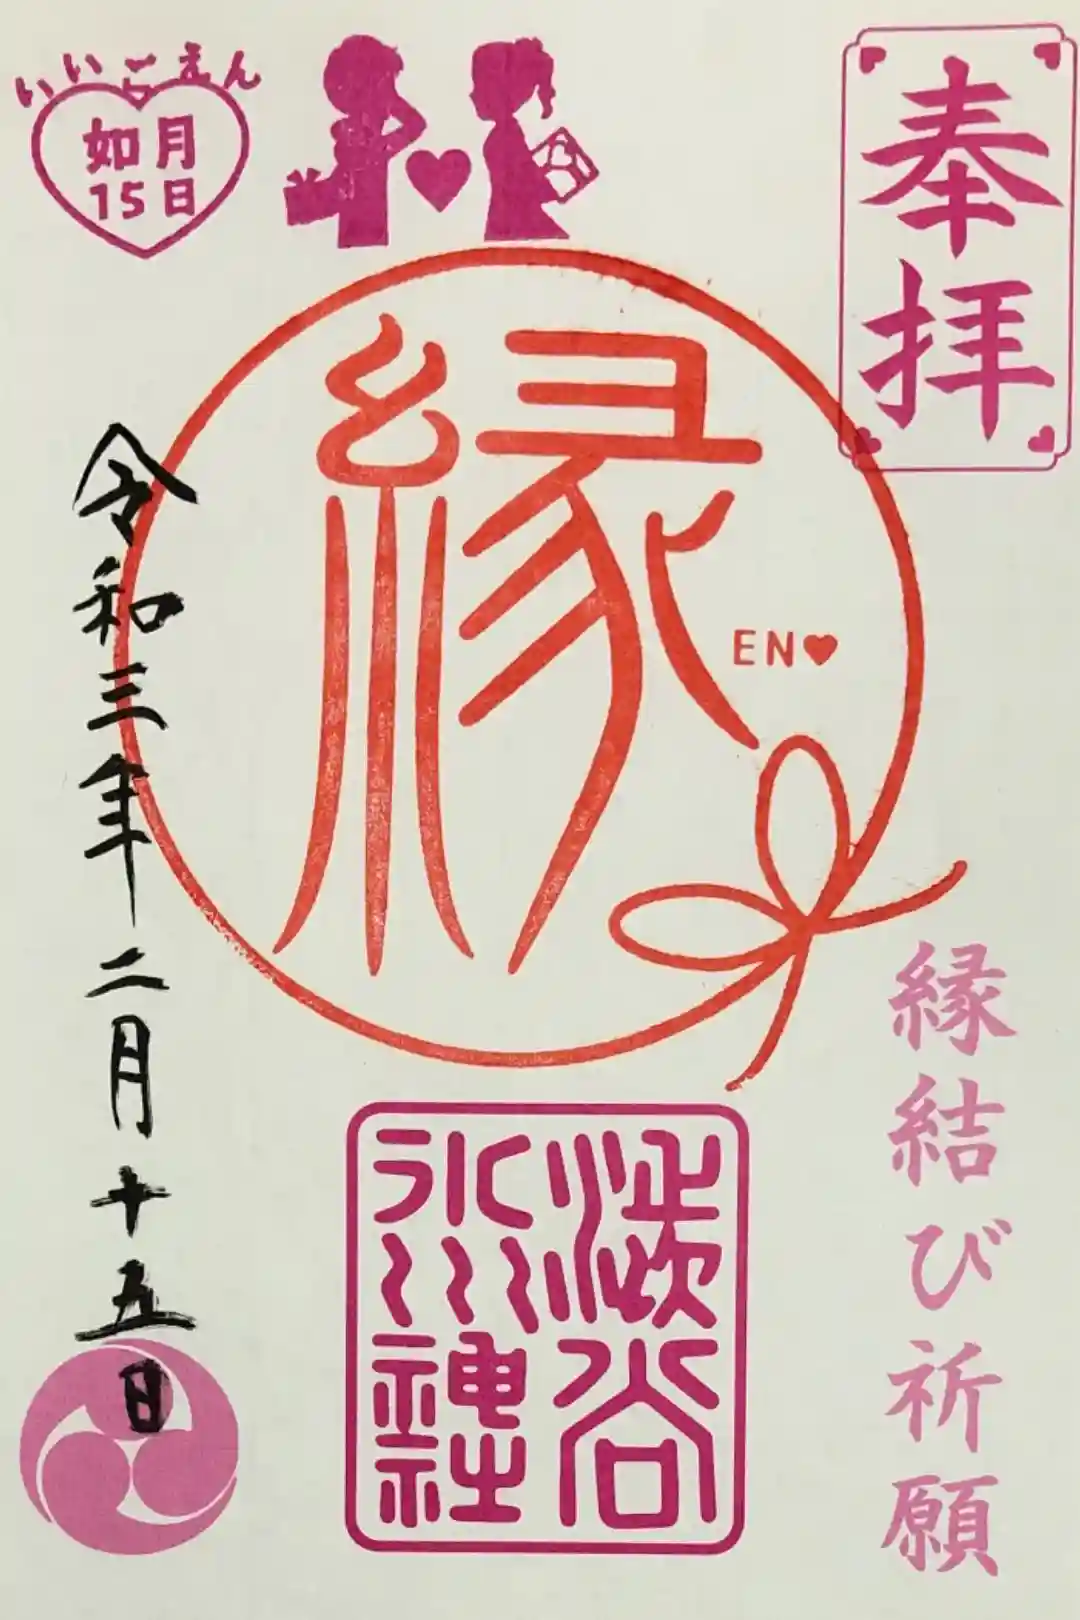 奉拝
いいごえん
如月
15日
縁
EN♥
縁結び祈願
渋谷
氷川
神社
令和三年二月十五日